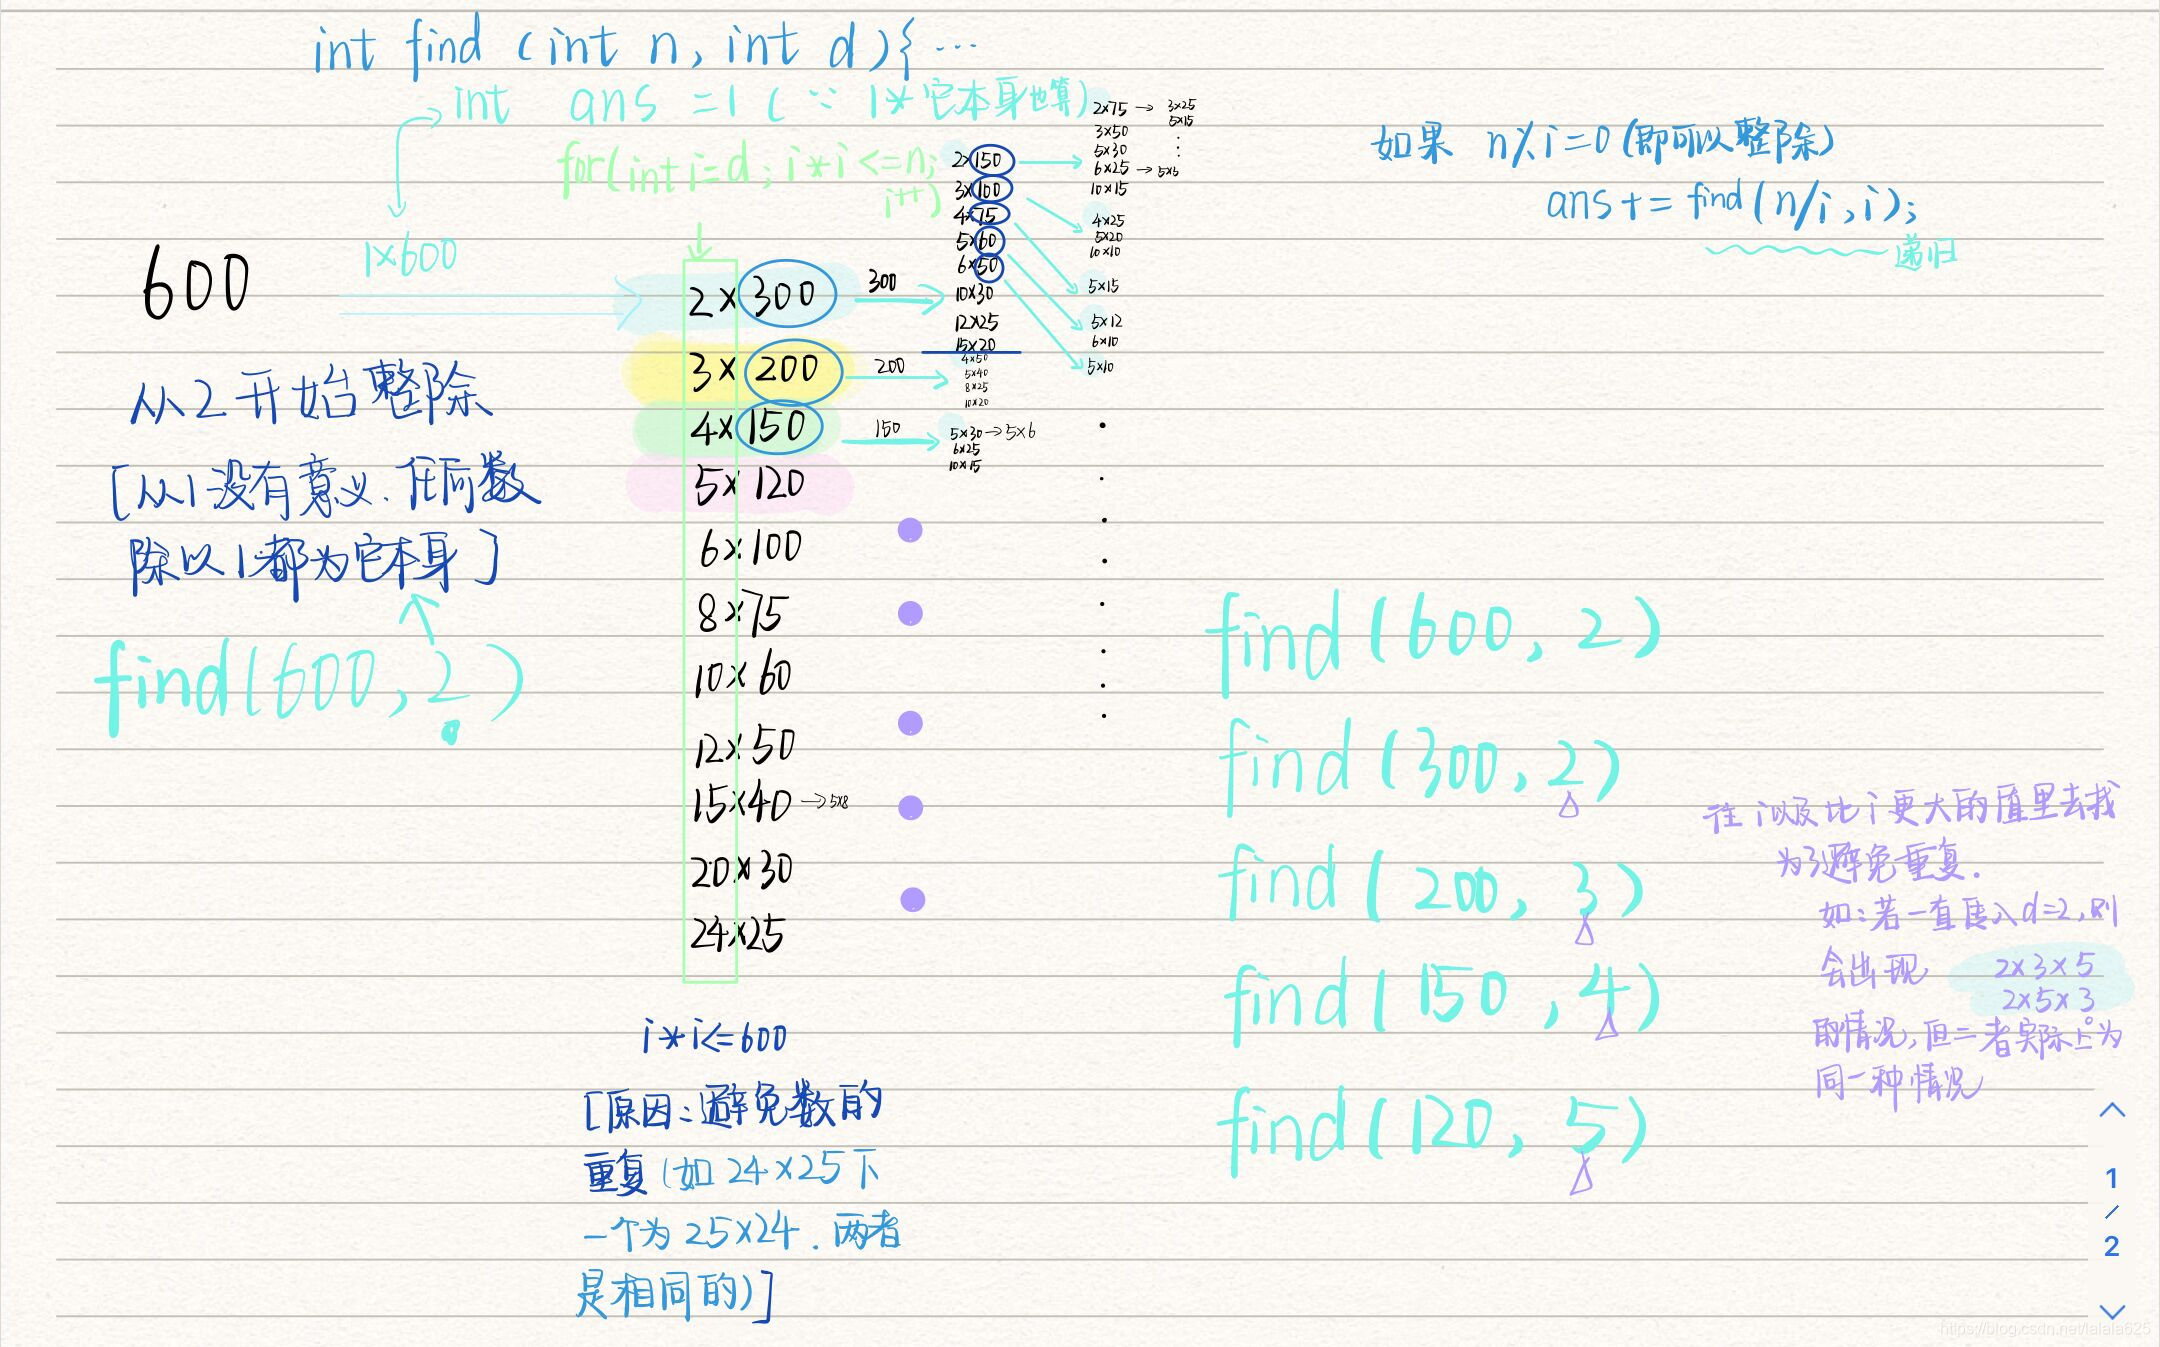 int find (int n, int d){ ...
int ans =1 (∵ 1*它本身也算)
for(int i=d; i*i<=n;
i++)
如果 n%i=0 (即可以整除)
ans += find(n/i, i);
递归
600
1×600
从2开始整除
[从1没有意义. 任何数
除以1都为它本身]
find(600, 2)
2×300
3×200
4×150
5×120
6×100
8×75
10×60
12×50
15×40 → 5×8
20×30
24×25
300
2×150
3×100
4×75
5×60
6×50
10×30
12×25
15×20
200
4×50
5×40
8×25
10×20
150
5×30 → 5×6
6×25
10×15
2×75 → 3×25
5×15
3×50
5×30
6×25 → 5×5
10×15
4×25
5×20
10×10
5×15
5×12
6×10
5×10
i*i<=600
[原因: 避免数的
重复 (如 24×25下
一个为 25×24. 两者
是相同的)]
find(600, 2)
find(300, 2)
find(200, 3)
find(150, 4)
find(120, 5)
往 i以及比 i 更大的值里去找
为了避免重复.
如: 若一直传入d=2, 则
会出现 2×3×5
2×5×3
的情况, 但二者实际上为
同一种情况
1
/
2
https://blog.csdn.net/lalala625